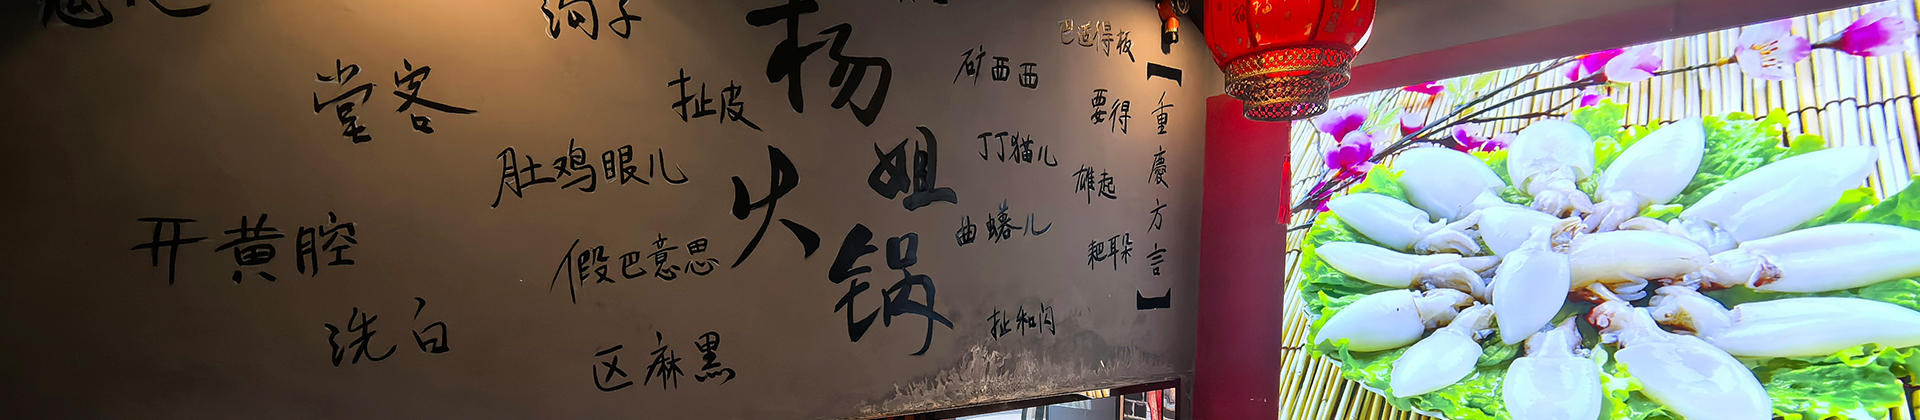 堂客
开黄腔
洗白
肚鸡眼儿
假巴意思
区麻黑
扯皮
杨
姐
火
锅
矿西西
丁丁猫儿
曲蟮儿
扯和闪
巴适得板
要得
雄起
耙耳朵
【重慶方言】